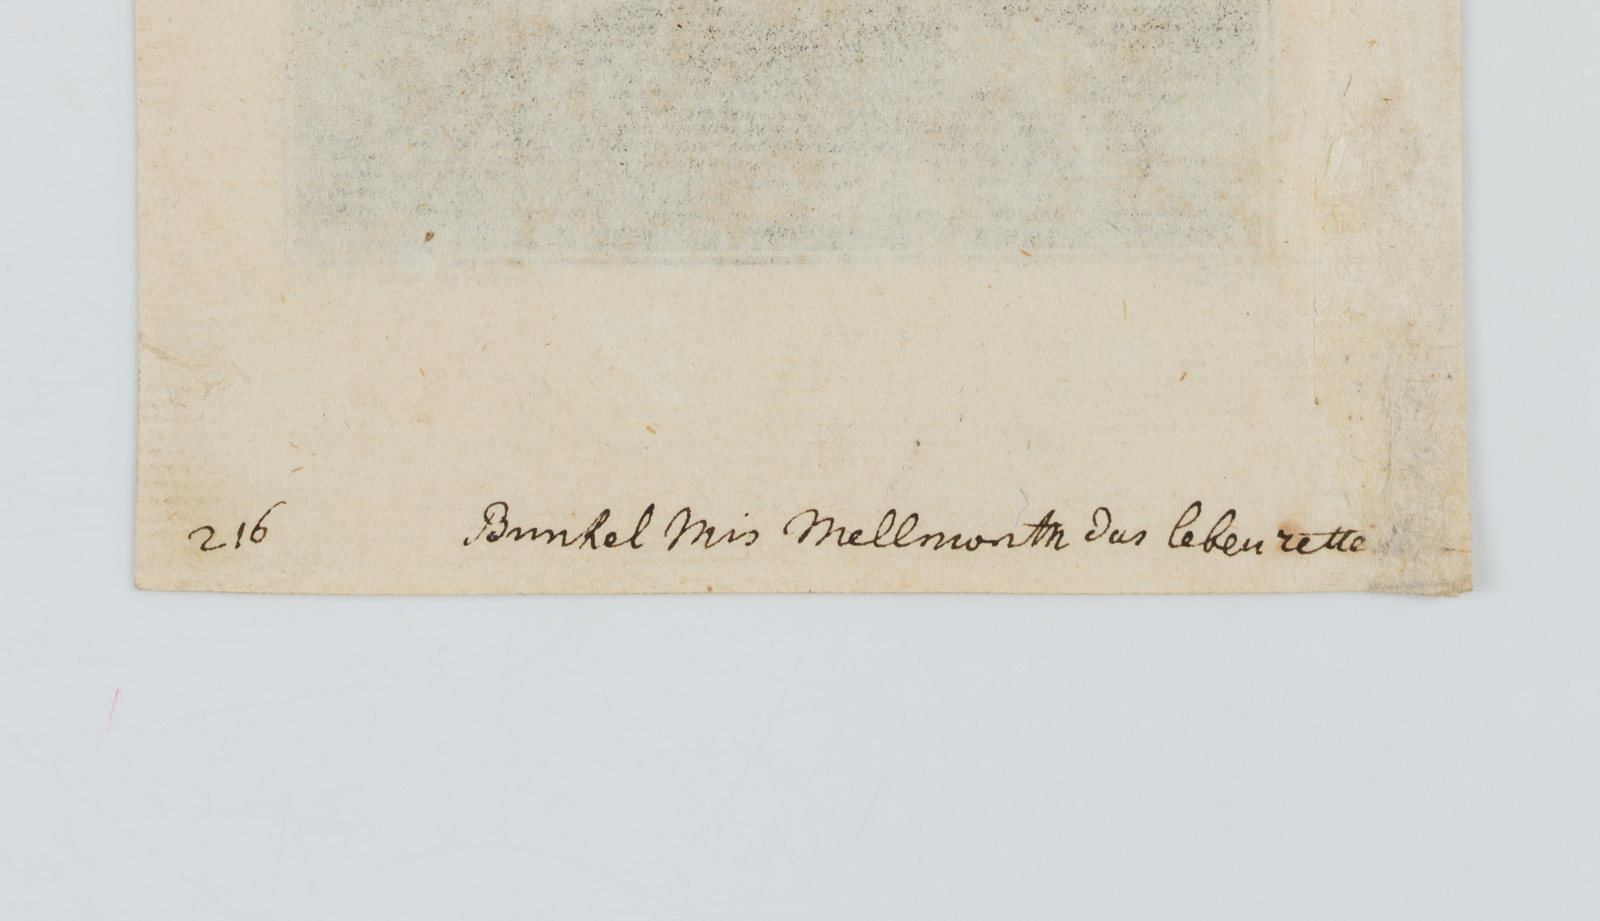 216 Bunkel Mis Mellmorth das leben rette